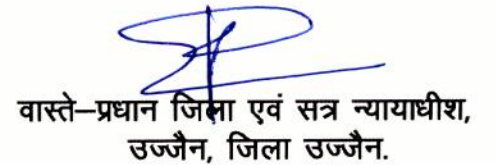 वास्ते–प्रधान जिला एवं सत्र न्यायाधीश,
उज्जैन, जिला उज्जैन.